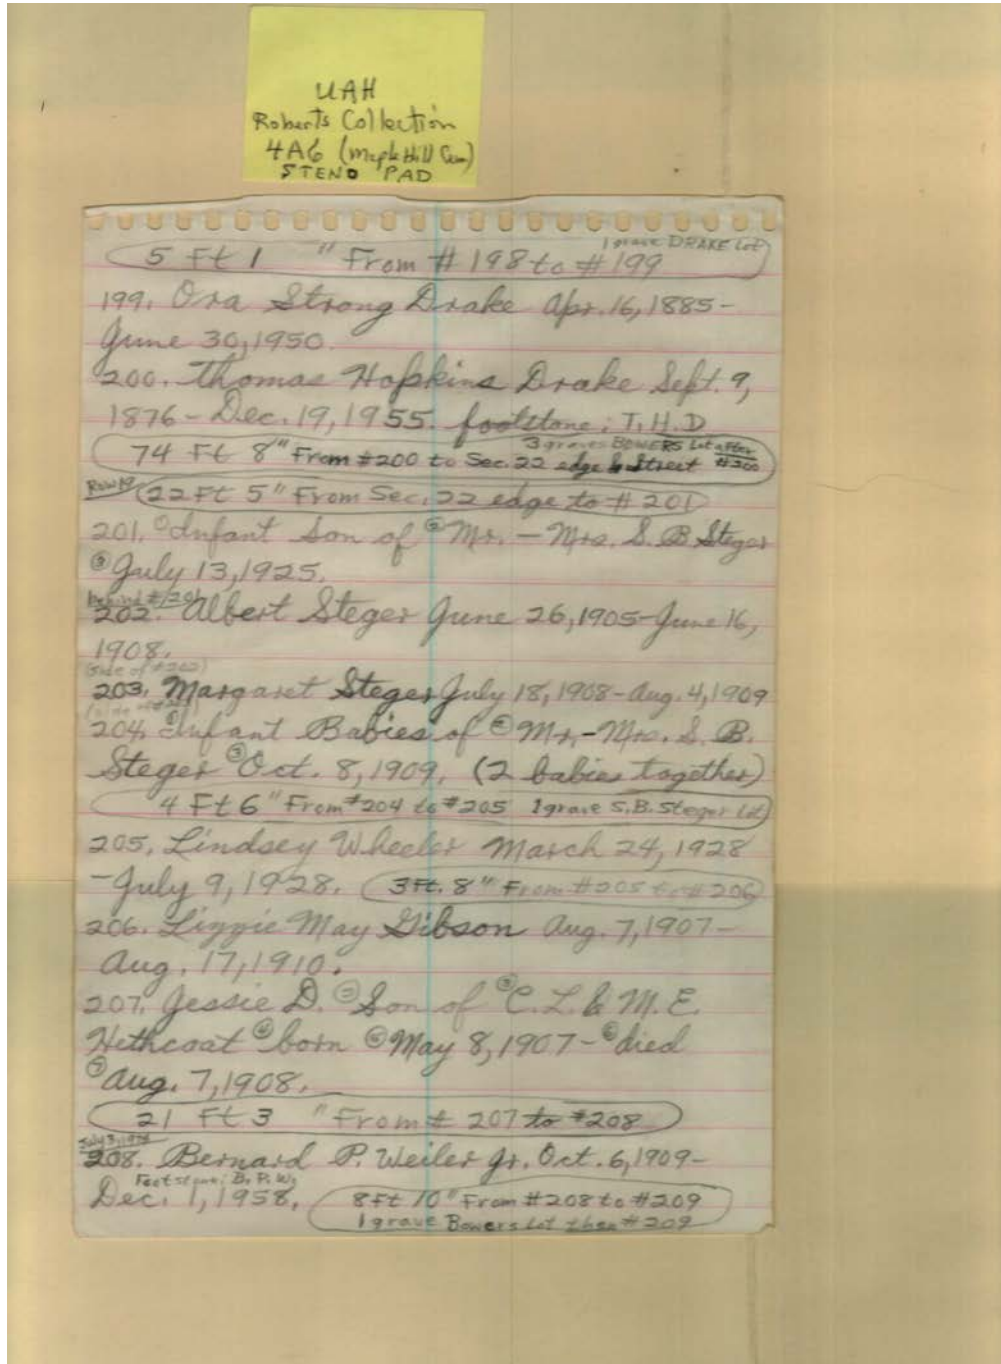 UAH
Roberts Collection
4A6 (Maple Hill Cem)
STENO PAD
1 grave DRAKE Lot
5 Ft 1 " From # 198 to # 199
199. Ora Strong Drake Apr. 16, 1885-
June 30, 1950.
200. Thomas Hopkins Drake Sept. 9,
1876- Dec. 19, 1955. footstone: T.H.D
3 graves BOWERS Lot after
74 Ft 8" From #200 to Sec. 22 edge & Street #200
Row 19 22 Ft 5" From Sec. 22 edge to # 201
201. ① Infant Son of ② Mr. - Mrs. S. B Steger
③ July 13, 1925.
behind #201
202. Albert Steger June 26, 1905-June 16,
1908.
(side of #202)
203. Margaret Steger July 18, 1908-Aug. 4, 1909
(side of
204. ① Infant Babies of ② Mr.-Mrs. S. B.
Steger ③ Oct. 8, 1909. (2 babies together)
4 Ft 6" From #204 to #205 1 grave S.B. Steger Lot
205. Lindsey Wheeler March 24, 1928
-July 9, 1928. 3 Ft. 8" From #205 to #206
206. Lizzie May Gibson Aug. 7, 1907-
Aug. 17, 1910.
207. Jessie D. ② Son of ③ C. L. & M. E.
Hethcoat ④ born ⑤ May 8, 1907- ⑥ died
⑦ Aug. 7, 1908.
21 Ft 3 " From # 207 to #208
July 3, 1978
208. Bernard P. Weiler Jr. Oct. 6, 1909-
Footstone: B. P. W.
Dec. 1, 1958. 8 Ft 10" From #208 to #209
1 grave Bowers Lot then #209